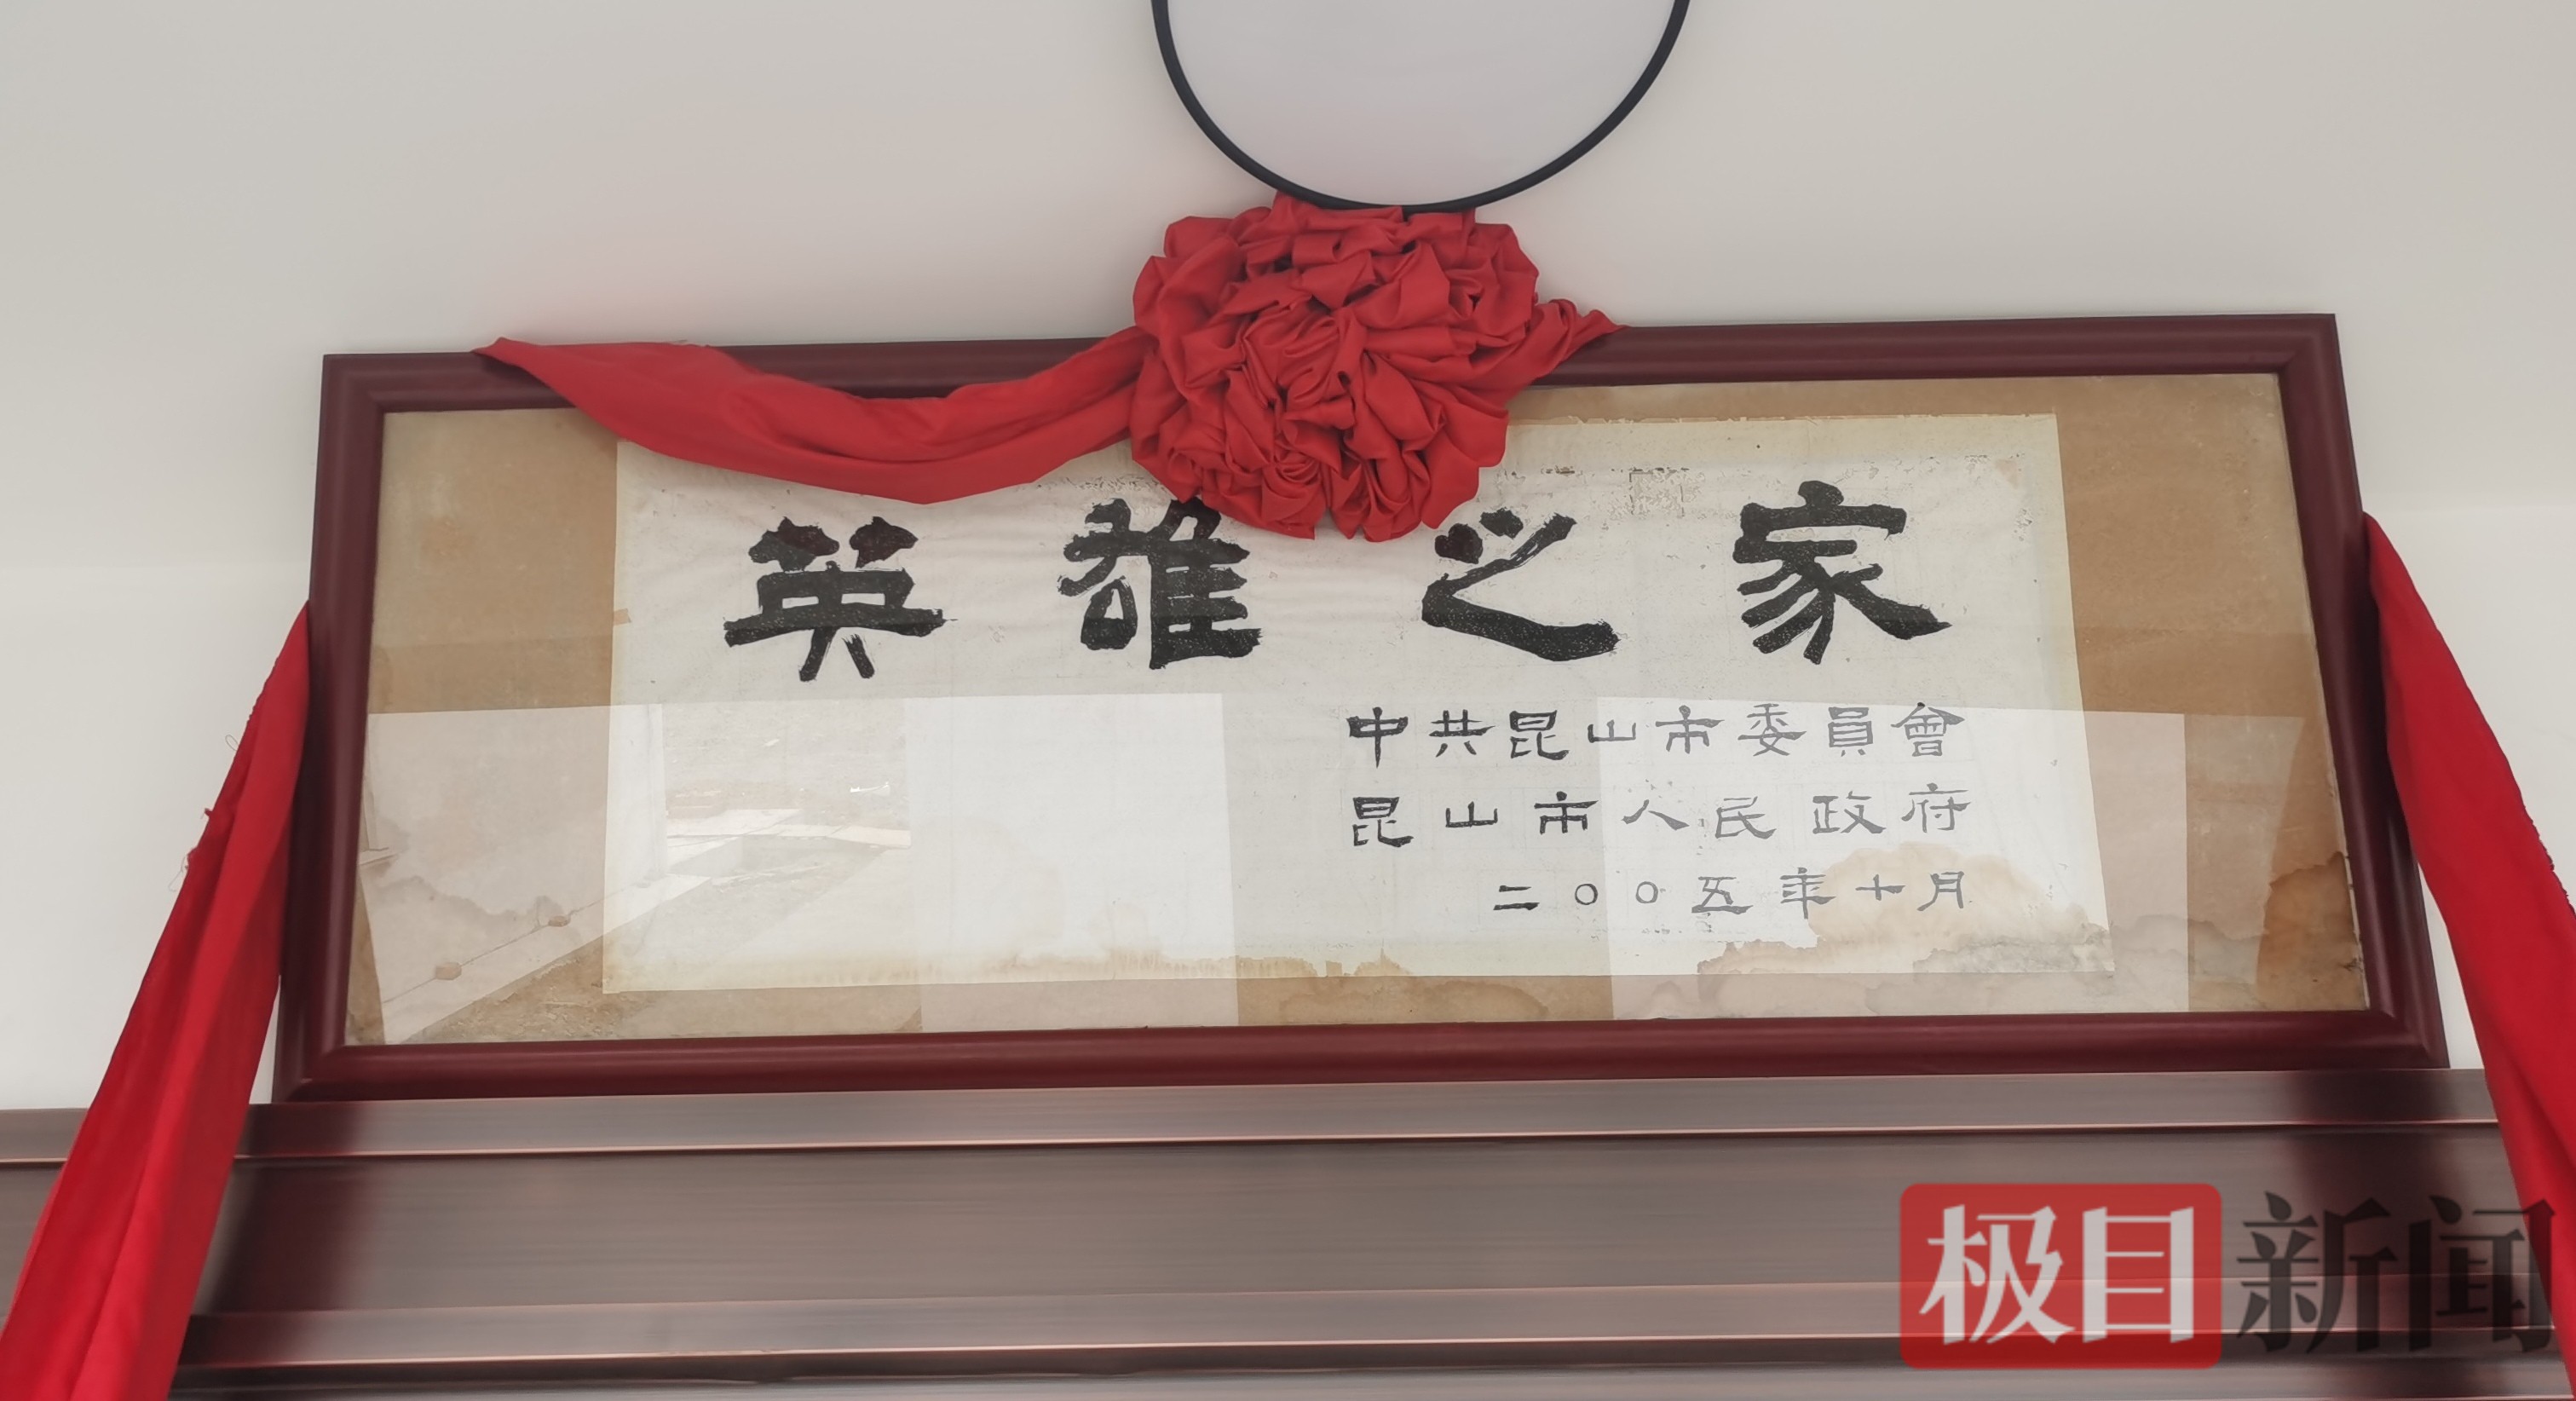 英雄之家
中共昆山市委員會
昆山市人民政府
二〇〇五年十月
极目新闻